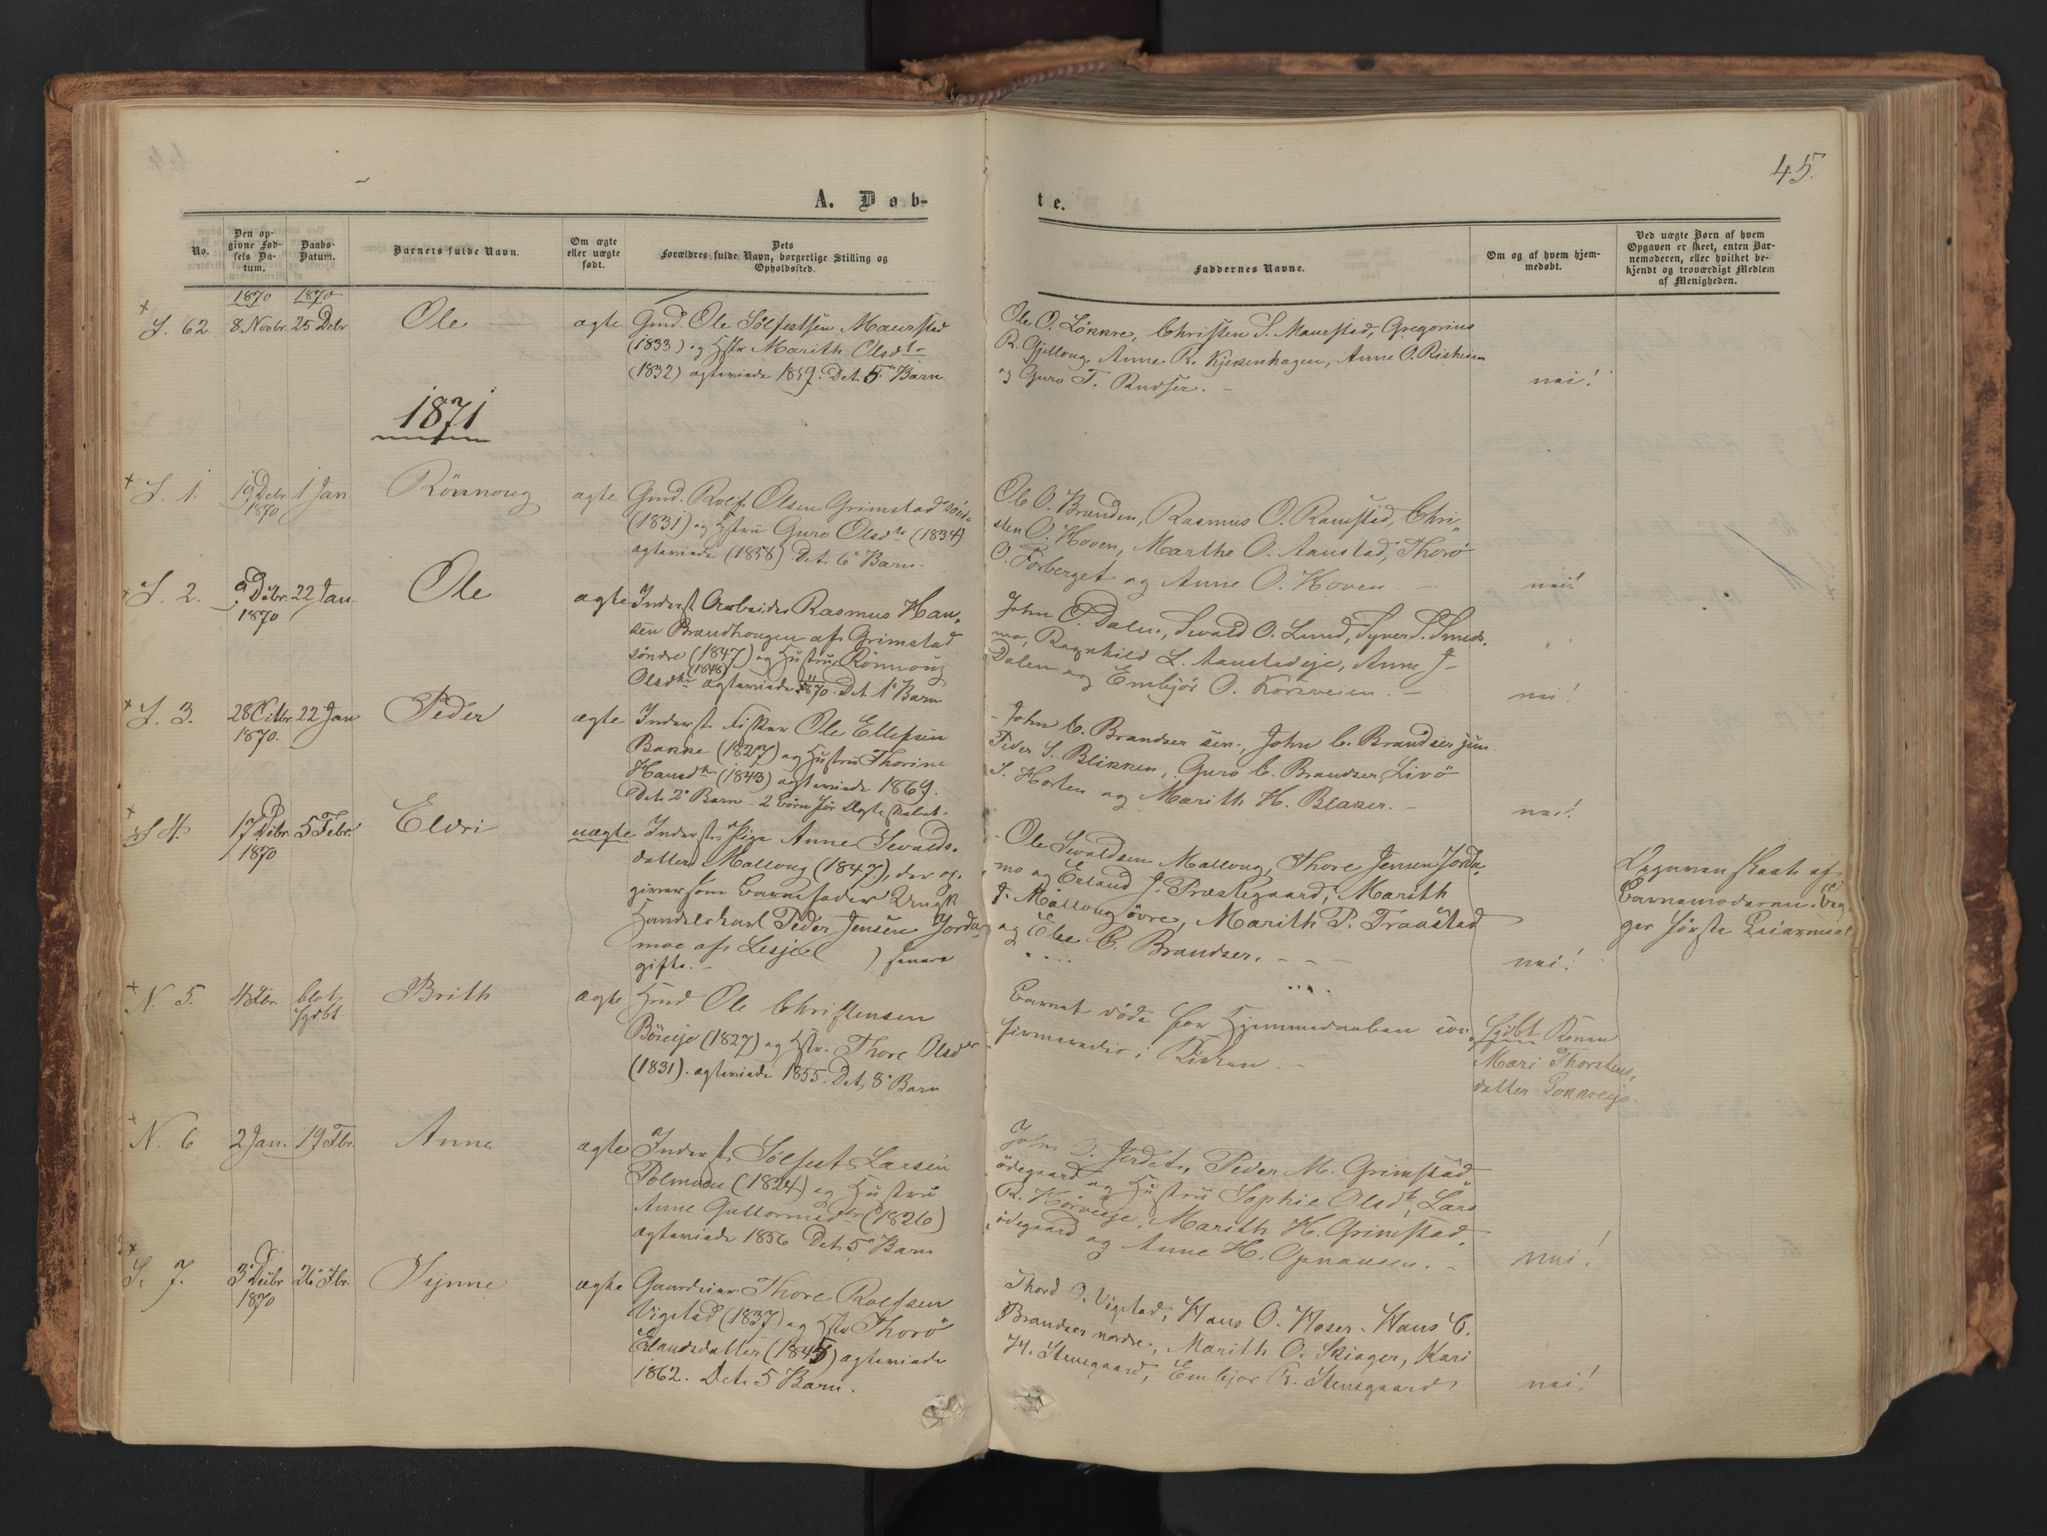 45.
A. Døb-
te.
No.
Den op-
givne Fød-
sels Da-
tum.
Daabs-
Datum.
Barnets fulde Navn.
Om ægte
eller uægte
født.
Dets
Forældres fulde Navn, borgerlige Stilling og
Opholdssted.
Faddernes Navne.
Om og af hvem hjem-
medøbt.
Ved uægte Børn af hvem
Opgaven er skeet, enten Bar-
nemoderen, eller hvilket be-
kjendt og troværdigt Medlem
af Menigheden.
1870 1870
S. 62. 8 Novbr. 25 Debr Ole ægte
Gmd. Ole Sølfestsen Maurstad
(1833) og Hstr Marith Olsdtr
(1832) ægteviede 1859. Det 5te Barn
Ole O. Løkkre, Christen S. Maurstad, Gregorius
R. Gjelloug, Anne R. Kjekenhagen, Anne O. Risheim
og Guro T. Rudser. -
nei!
1871
S. 1. 19 Debr 1870 1 Jan Rönnoug ægte
Gmd. Rolf Olsen Grimstad
(1831) og Hstru Guro Olsdtr (1834)
ægteviede (1858) Det 6te Barn.
Ole O. Brænden, Rasmus O. Ramstad, Chri-
sten O. Hoven, Marthe O. Aanstad, Thorö
O. Forberget og Anne O. Hoven. -
nei!
S. 2. 9 Debr. 1870 22 Jan Ole ægte
Inderst Arbeider Rasmus Han-
sen Brændhougen af Grimstad
søndre (1847) og Hustru Rönnoug
Olsdtr (1848) ægteviede 1870. Det 1te Barn
John O. Dalen, Sevald O. Lund, Syver S.
mo, Ragnhild L. Aanstadeje, Anne J.
Dalen og Embjør O. Korsveien. -
nei!
S. 3. 28 1870. 22 Jan Peder ægte
Inderst Fisker Ole Ellefsen
Bakke (1827) og Hustru Thorine
Hansdtr (1843) ægteviede 1869.
Det 2te Barn - 2 Børn før
John C. Brandser sen., John C. Brandser jun.
Peder S. Blikken, Guro C. Brandser, Livö
S. Horten og Marith H. Blaker. -
nei!
S 4. 17 Debr. 1870 5 Febr Eldri uægte
Inderst Pige Anne Sevalds-
datter Mølloug (1847), der op-
giver som Barnefader Ungk
Handelskarl Peder Jensen Jorda-
moe af Lesje senere
gifte. -
Ole Sevaldsen Mølloug, Thore Jensen Jorda-
mo og Erland J. Præstegaard, Marith
J. Mølloug øvre, Marith P. Traastad
og Else C. Brandser. - - -
nei!
af
Barnemoderen. Beg-
ges første Leiermaal
N. 5. 4 Fbr. blot hjdbt Brith ægte
Hmd Ole Christensen
Böreeje (1827) og Hstr. Thore Olsdtr
(1831). ægteviede 1855. Det 8de Barn
Barnet døde før Hjemmedaaben con-
firmeredes i Kirken. -
hjdbt Konen
Mari Thorstens-
datter Lökkreeje.
N. 6 2 Jan. 19 Fbr. Anne ægte
Inderst Sølfest Larsen
Polmoen (1824) og Hustru
Anne Guttormsdtr (1826)
ægteviede 1856 Det 5te Barn
John O. Jerdet, Peder M. Grimstad-
ødegaard og Hustru Sophie Olsdtr, Lars
R. Hörveeje, Marith H. Grimstad-
ødegaard og Anne H. Opnausen. -
nei!
S. 7. 3 Debr 1870 26 Fbr. Synne ægte
Gaardeier Thore Rolfsen
Vigstad (1837) og Hstr Thorö
Erlandsdatter (1845) ægteviede
1862. Det 5 Barn.
Thord O. Vigstad, Hans O. Moser, Hans C.
Brandser nordre, Marith O. Skiager, Kari
H. Stensgaard, Embjør R. Stensgaard
nei!